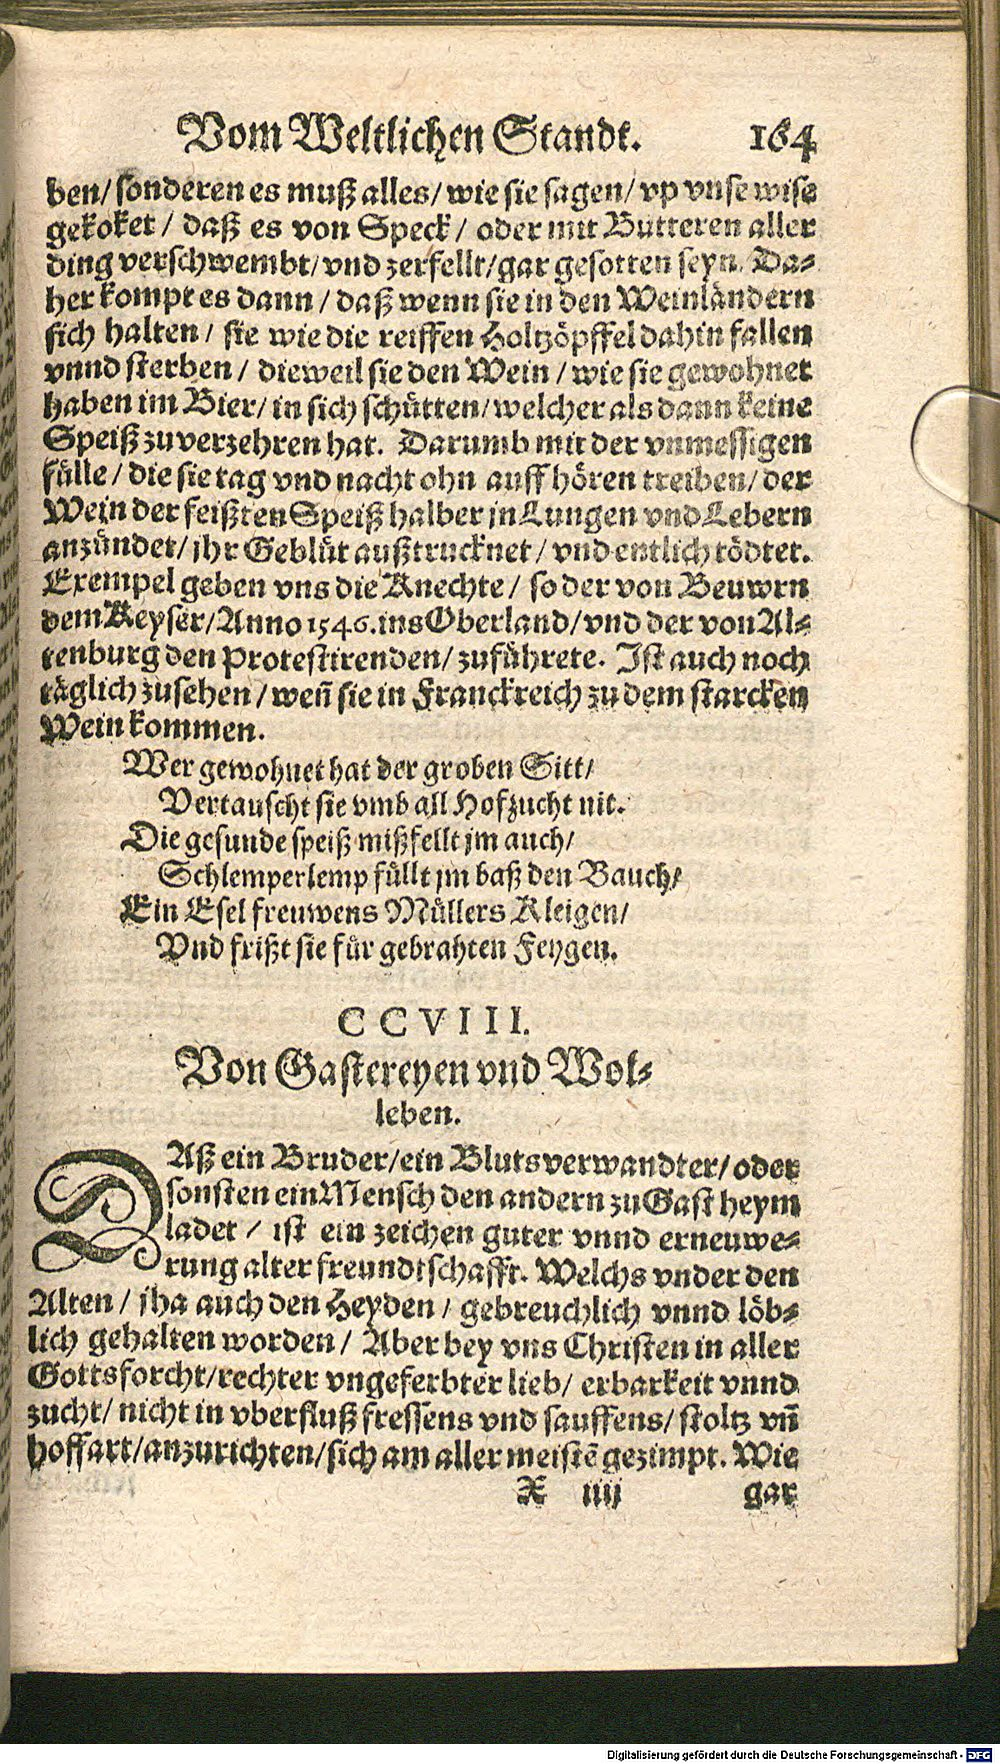 Vom Weltlichen Standt. 164
ben/ sonderen es muß alles/ wie sie sagen/ vp vnse wise
gekoket / daß es von Speck / oder mit Butteren aller
ding verschwembt/ vnd zerfellt/ gar gesotten seyn. Da-
her kompt es dann / daß wenn sie in den Weinländern
sich halten / sie wie die reiffen Holtzöpffel dahin fallen
vnnd sterben / dieweil sie den Wein / wie sie gewohnet
haben im Bier/ in sich schütten/ welcher als dann keine
Speiß zuverzehren hat. Darumb mit der vnmessigen
fülle / die sie tag vnd nacht ohn auff hören treiben/ der
Wein der feißten Speiß halber jn Lungen vnd Lebern
anzündet/ jhr Geblüt außtrucknet / vnd entlich tödtet.
Exempel geben vns die Knechte / so der von Beuwrn
dem Keyser/ Anno 1546. ins Oberland/ vnd der von Al-
tenburg den Protestirenden/ zuführete. Ist auch noch
täglich zusehen / weñ sie in Franckreich zu dem starcken
Wein kommen.
Wer gewohnet hat der groben Sitt/
Vertauscht sie vmb all Hofzucht nit.
Die gesunde speiß mißfellt jm auch/
Schlemperlemp füllt jm baß den Bauch/
Ein Esel freuwens Müllers Kleigen/
Vnd frißt sie für gebrahten Feygen.
CCVIII.
Von Gastereyen vnd Wol-
leben.
DAß ein Bruder/ ein Blutsverwandter/ oder
sonsten ein Mensch den andern zu Gast heym
ladet / ist ein zeichen guter vnnd erneuwe-
rung alter freundtschafft. Welchs vnder den
Alten / jha auch den Heyden / gebreuchlich vnnd löb-
lich gehalten worden / Aber bey vns Christen in aller
Gottsforcht/ rechter vngeferbter lieb/ erbarkeit vnnd
zucht/ nicht in vberfluß fressens vnd sauffens/ stoltz vñ
hoffart/ anzurichten/ sich am aller meistẽ gezimpt. Wie
X iiij gar
Digitalisierung gefördert durch die Deutsche Forschungsgemeinschaft - DFG